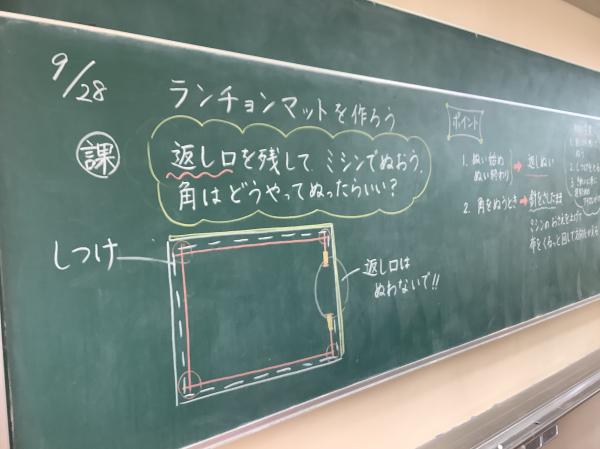 9/28
ランチョンマットを作ろう
課
返し口を残して、ミシンでぬおう。
角はどうやってぬったらいい？
しつけ
返し口は
ぬわないで!!
ポイント
1. ぬい始め
ぬい終わり
返しぬい
2. 角をぬうとき→針をさしたまま
ミシンのおさえを上げて
布をくるっと回して方向をかえる